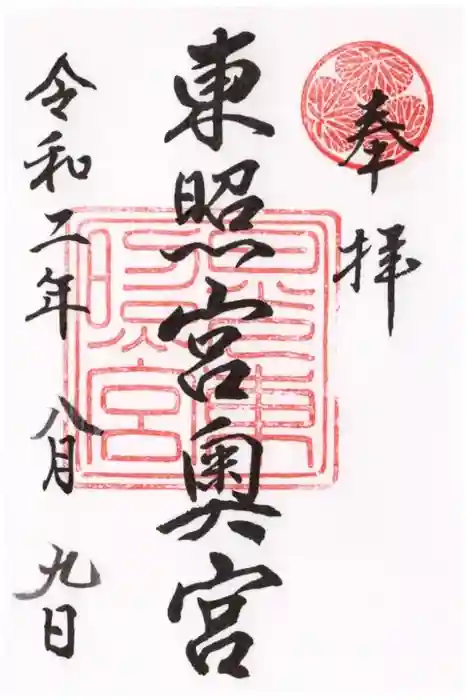 奉拝
東照宮奥宮
令和二年 八月 九日